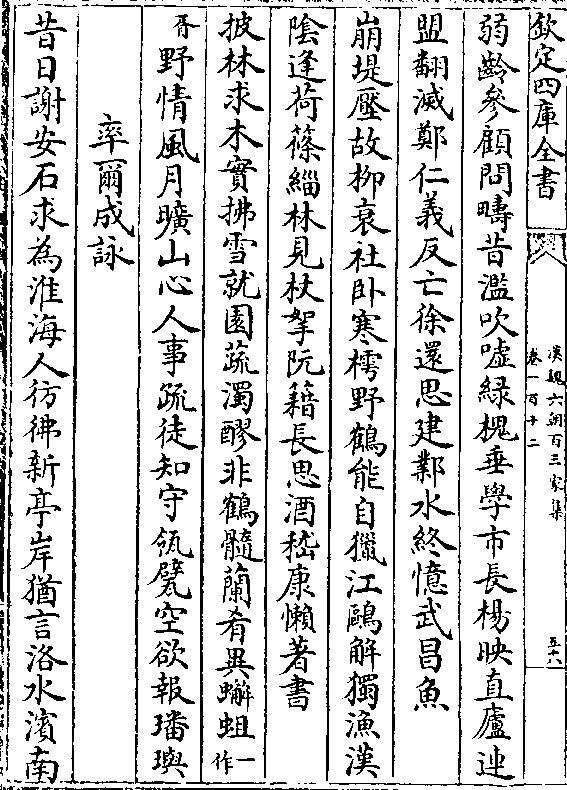 欽定四庫全書
漢魏六朝百三家集
卷一百十二
五十八
弱齡參顧問疇昔濫吹噓綠槐垂學市長楊映直廬連
盟翻滅鄭仁義反亡徐還思建鄴水終憶武昌魚
崩堤壓故柳衰社臥寒樗野鶴能自獵江鷗解獨漁漢
陰逢荷篠緇林見杖挐阮籍長思酒嵇康懶著書
披林求木實拂雪就園蔬濁醪非鶴髓蘭肴異蠏蛆一作
胥野情風月曠山心人事疏徒知守瓴甓空欲報璠璵
率爾成詠
昔日謝安石求為淮海人彷彿新亭岸猶言洛水濱南